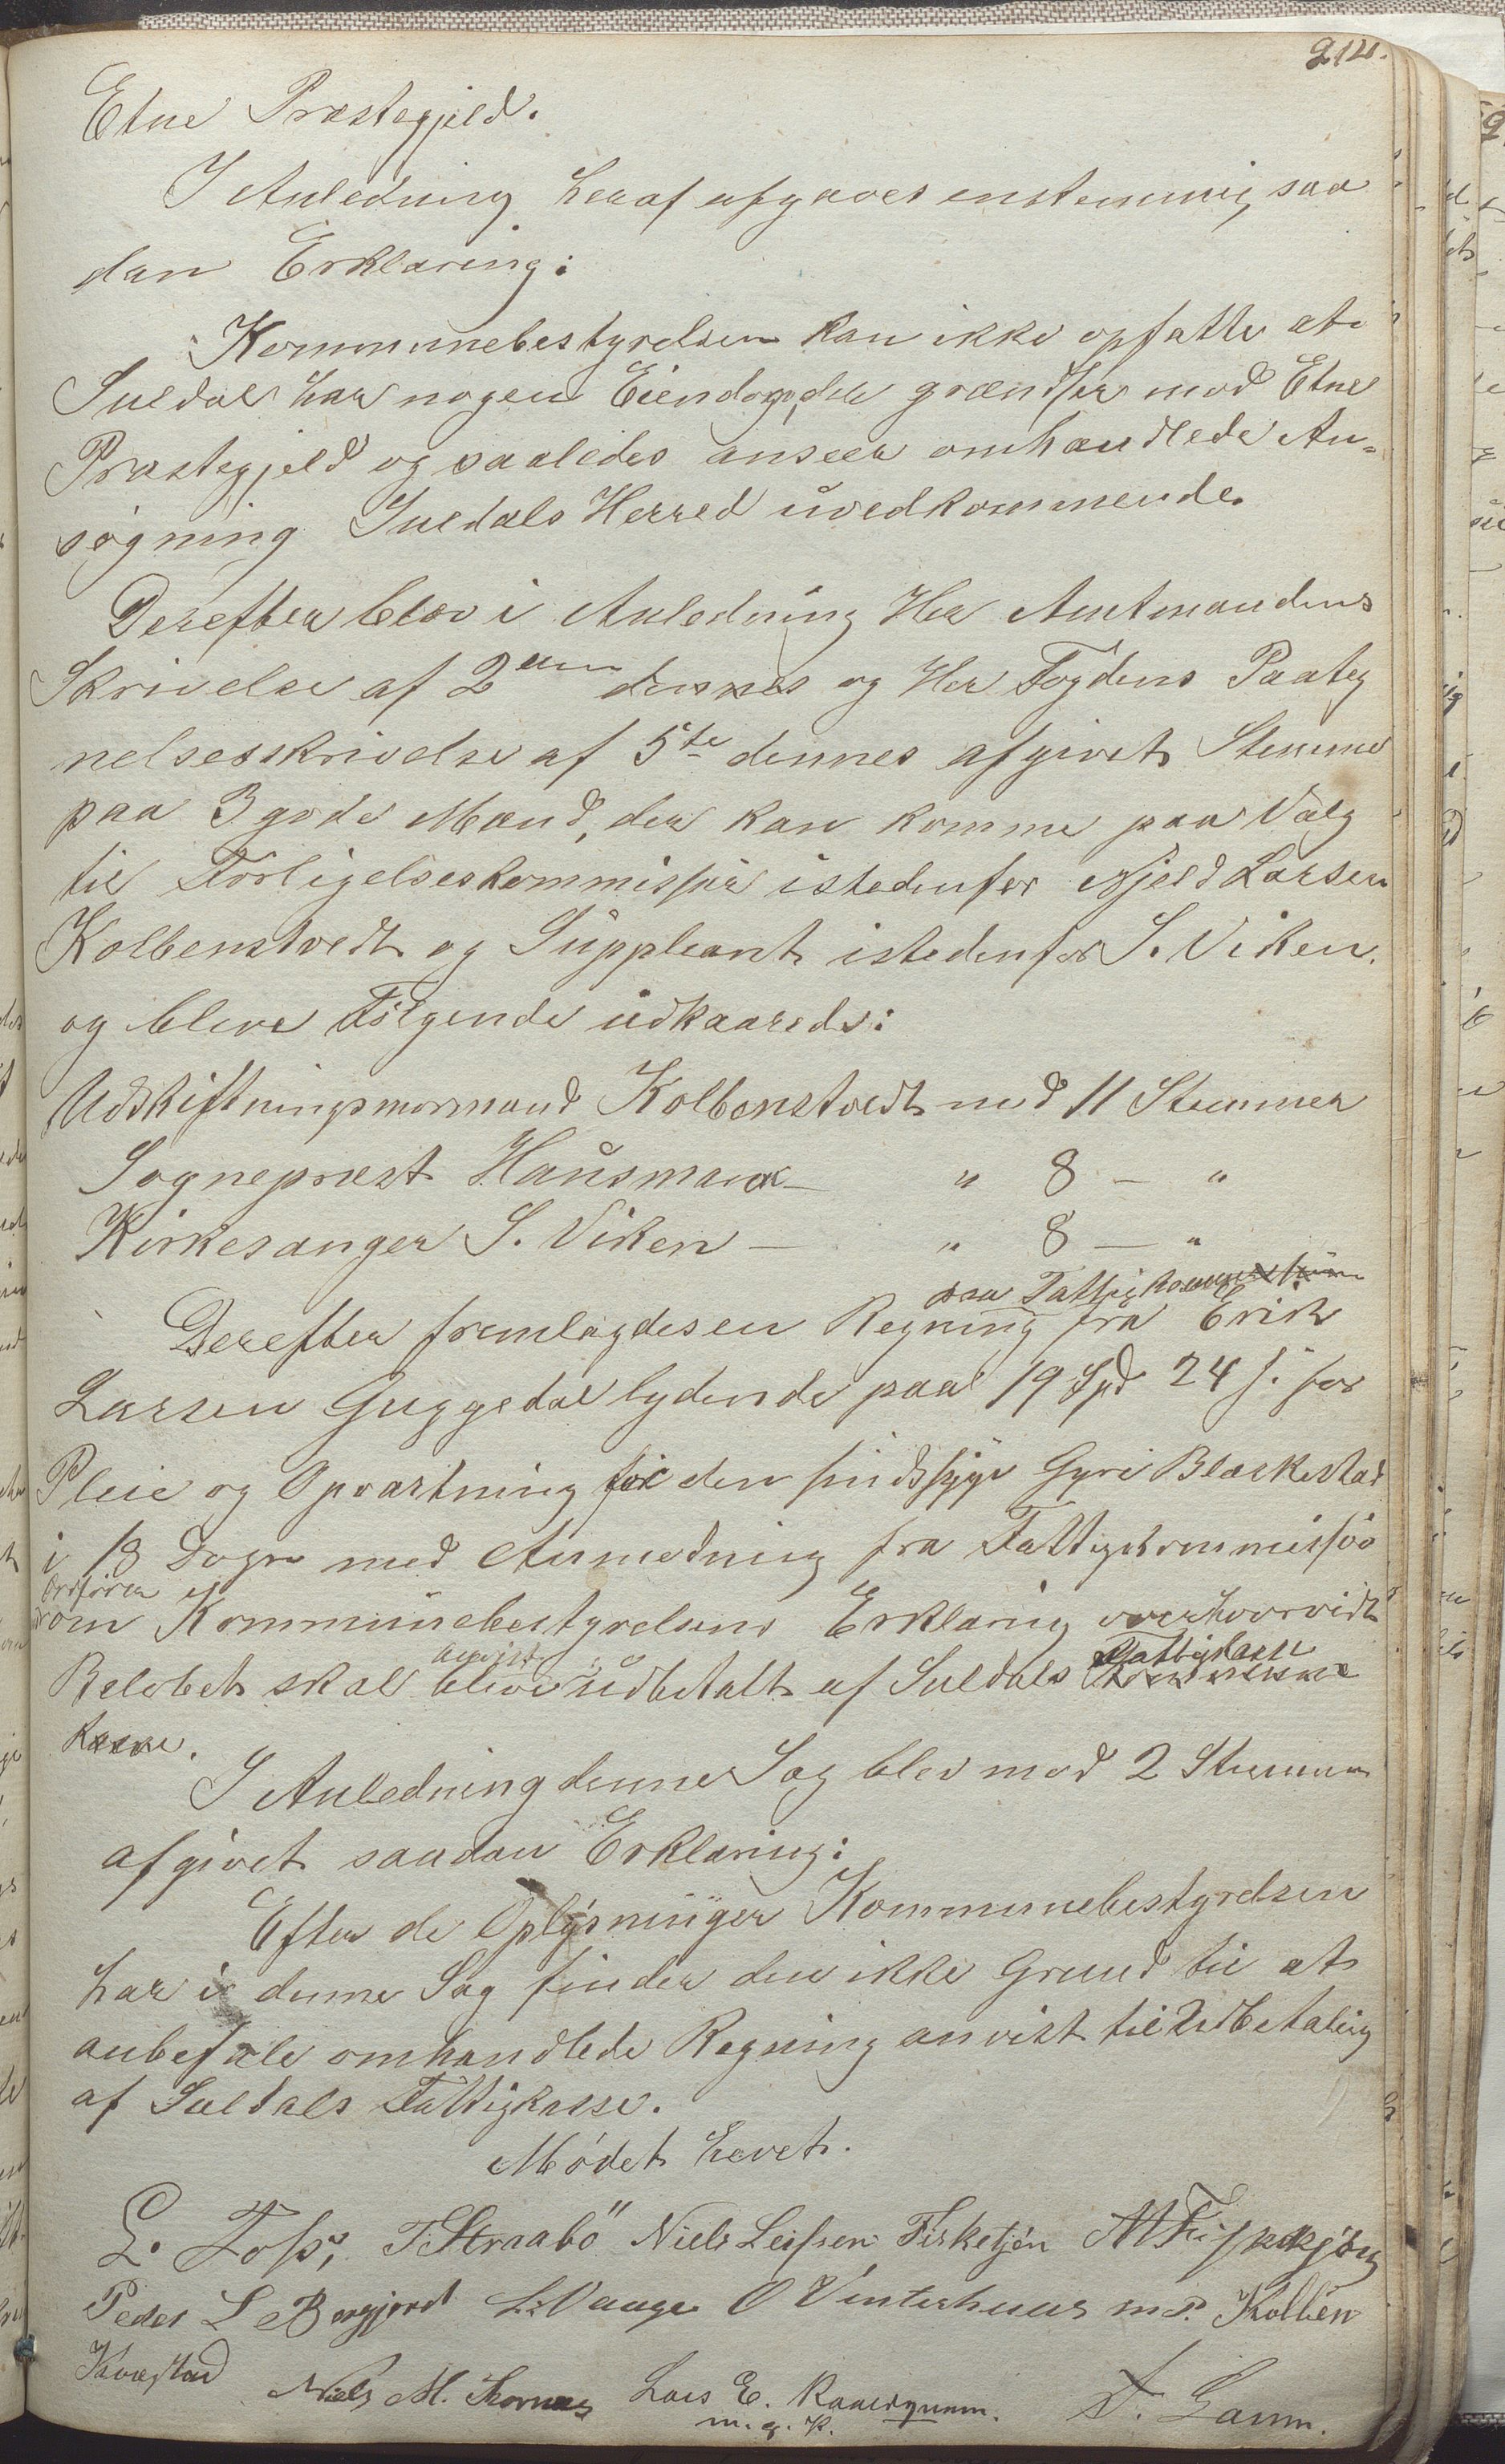 214.
Etne Præstegjeld.
I Anledning heraf afgaves enstemmig saa
dan Erklæring:
Kommunebestyrelsen kan ikke opfatte at
Suldal har nogen Eiendom, der grændser mod Etne
Præstegjeld og saaledes anseer omhandlede An-
søgning Suldals Herred uvedkommende.
Derefter blev i Anledning Her Amtmandens
Skrivelse af 2den dennes og Her Fogdens Paateg
nelsesskrivelse af 5te dennes afgivet Stemme
paa 3 gode Mænd, der kan komme paa Valg
til Forligelseskommissær istedenfor Kjeld Larsen
Kolbenstvedt og Suppleant istedenfor S. Viken.
og bleve Følgende udkaarede:
Udskiftningsformand Kolbenstvedt med 11 Stemmer
Sogneprest Hausmann — " 8 — "
Kirkesanger S. Viken — " 8 — "
Derefter fremlagdes en Regning fra Erik
Larsen Guggedal lydende paa 19 Spd 24 s. for
Pleie og Opvartning for den sindssyge Gyri Bleskestad
i 18 Døgn med Anmodning fra Fattigkommissio
Ordfører
om Kommunebestyrelsens Erklæring hvorvidt
anvist Fattigkasse
Beløbet skal blive udbetalt af Suldals
Kasse.
I Anledning denne Sag blev mod 2 Stemmer
afgivet saadan Erklæring:
Efter de Oplysninger Kommunebestyrelsen
har i denne Sag finder den ikke Grund til at
anbefale omhandlede Regning anvist til Udbetaling
af Suldals Fattigkasse.
Mødet hævet.
L. Foss, T Straabø Niels Leifsen Fisketjøn
Peder L Bergjord L. Vaage O Vinterhuus m. P. Kolbën
Kvæstad Niels M. Lars E. m. P.